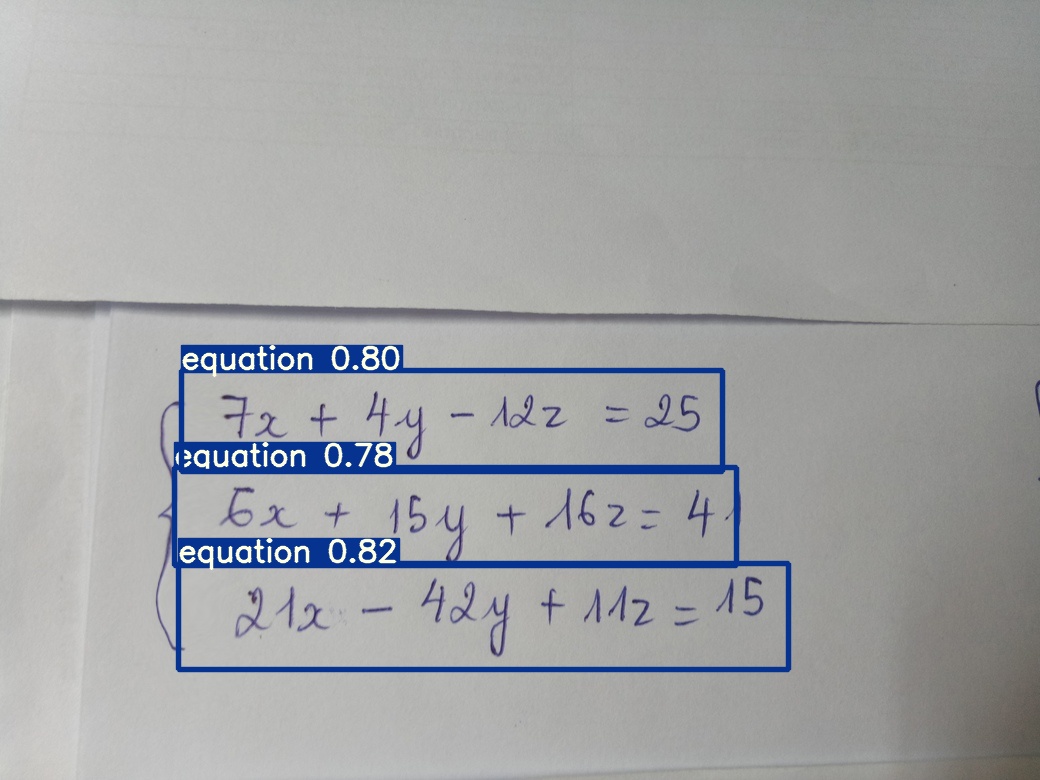 equation 0.80
7x + 4y - 12z = 25
equation 0.78
6x + 15y + 16z = 41
equation 0.82
21x - 42y + 11z = 15